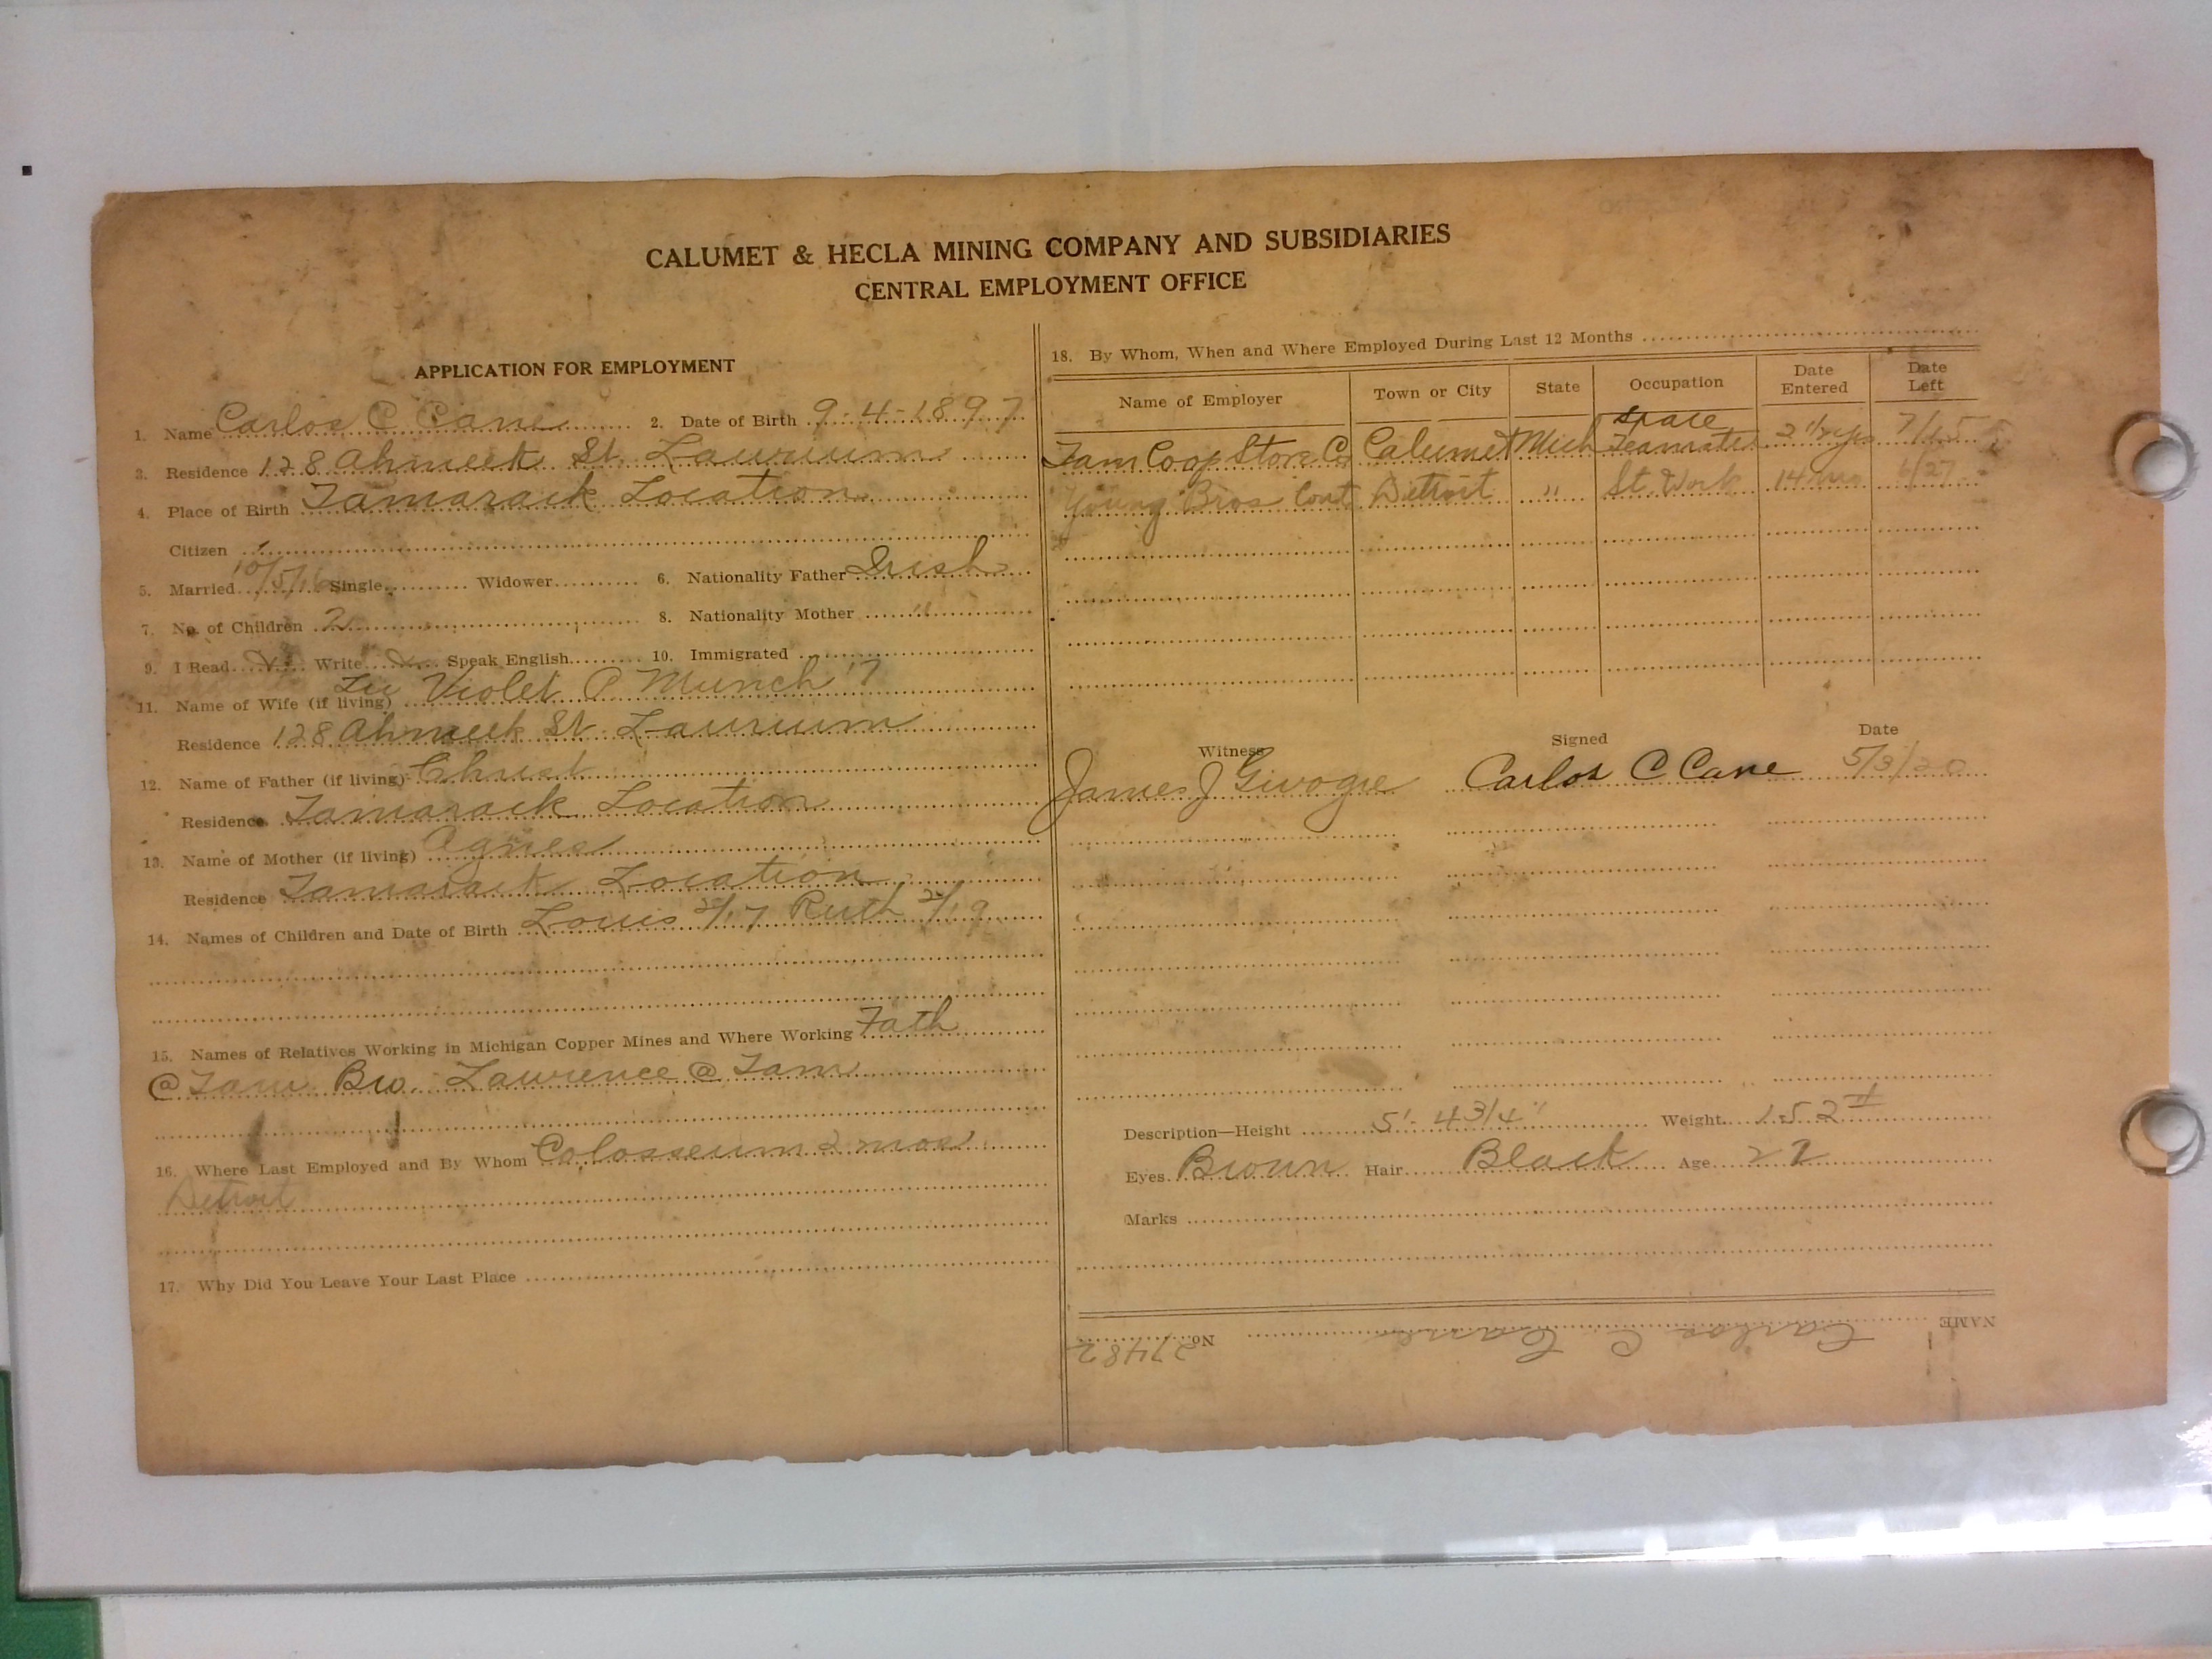 CALUMET & HECLA MINING COMPANY AND SUBSIDIARIES
CENTRAL EMPLOYMENT OFFICE
APPLICATION FOR EMPLOYMENT
1. Name Carlos C Cane 2. Date of Birth 9-4-1897
3. Residence 128 Ahmeek St. Laurium
4. Place of Birth Tamarack Location
Citizen
5. Married 10/5/16 Single Widower 6. Nationality Father Irish
7. No. of Children 2 8. Nationality Mother "
9. I Read Write Speak English 10. Immigrated
11. Name of Wife (if living) Violet P Munch
Residence 128 Ahmeek St Laurium
12. Name of Father (if living) Christ
Residence Tamarack Location
13. Name of Mother (if living) Agnes
Residence Tamarack Location
14. Names of Children and Date of Birth Louis Ruth
15. Names of Relatives Working in Michigan Copper Mines and Where Working Fath
@ Tam Bro. Lawrence @ Tam
16. Where Last Employed and By Whom Colosseum 2 mos
Detroit
17. Why Did You Leave Your Last Place
18. By Whom, When and Where Employed During Last 12 Months
Name of Employer Town or City State Occupation Date Entered Date Left
Tam Coop Store Co Calumet Mich Teamster 2 1/2 yrs 7/15
Young Bros Cont Detroit " St. Work 14 mo 6/27
Witness Signed Date
James J Givogre Carlos C Cane 5/3/20
Description—Height 5'- 4 3/4" Weight 152#
Eyes Brown Hair Black Age 22
Marks
NAME Carlos C. Cane No. 27482